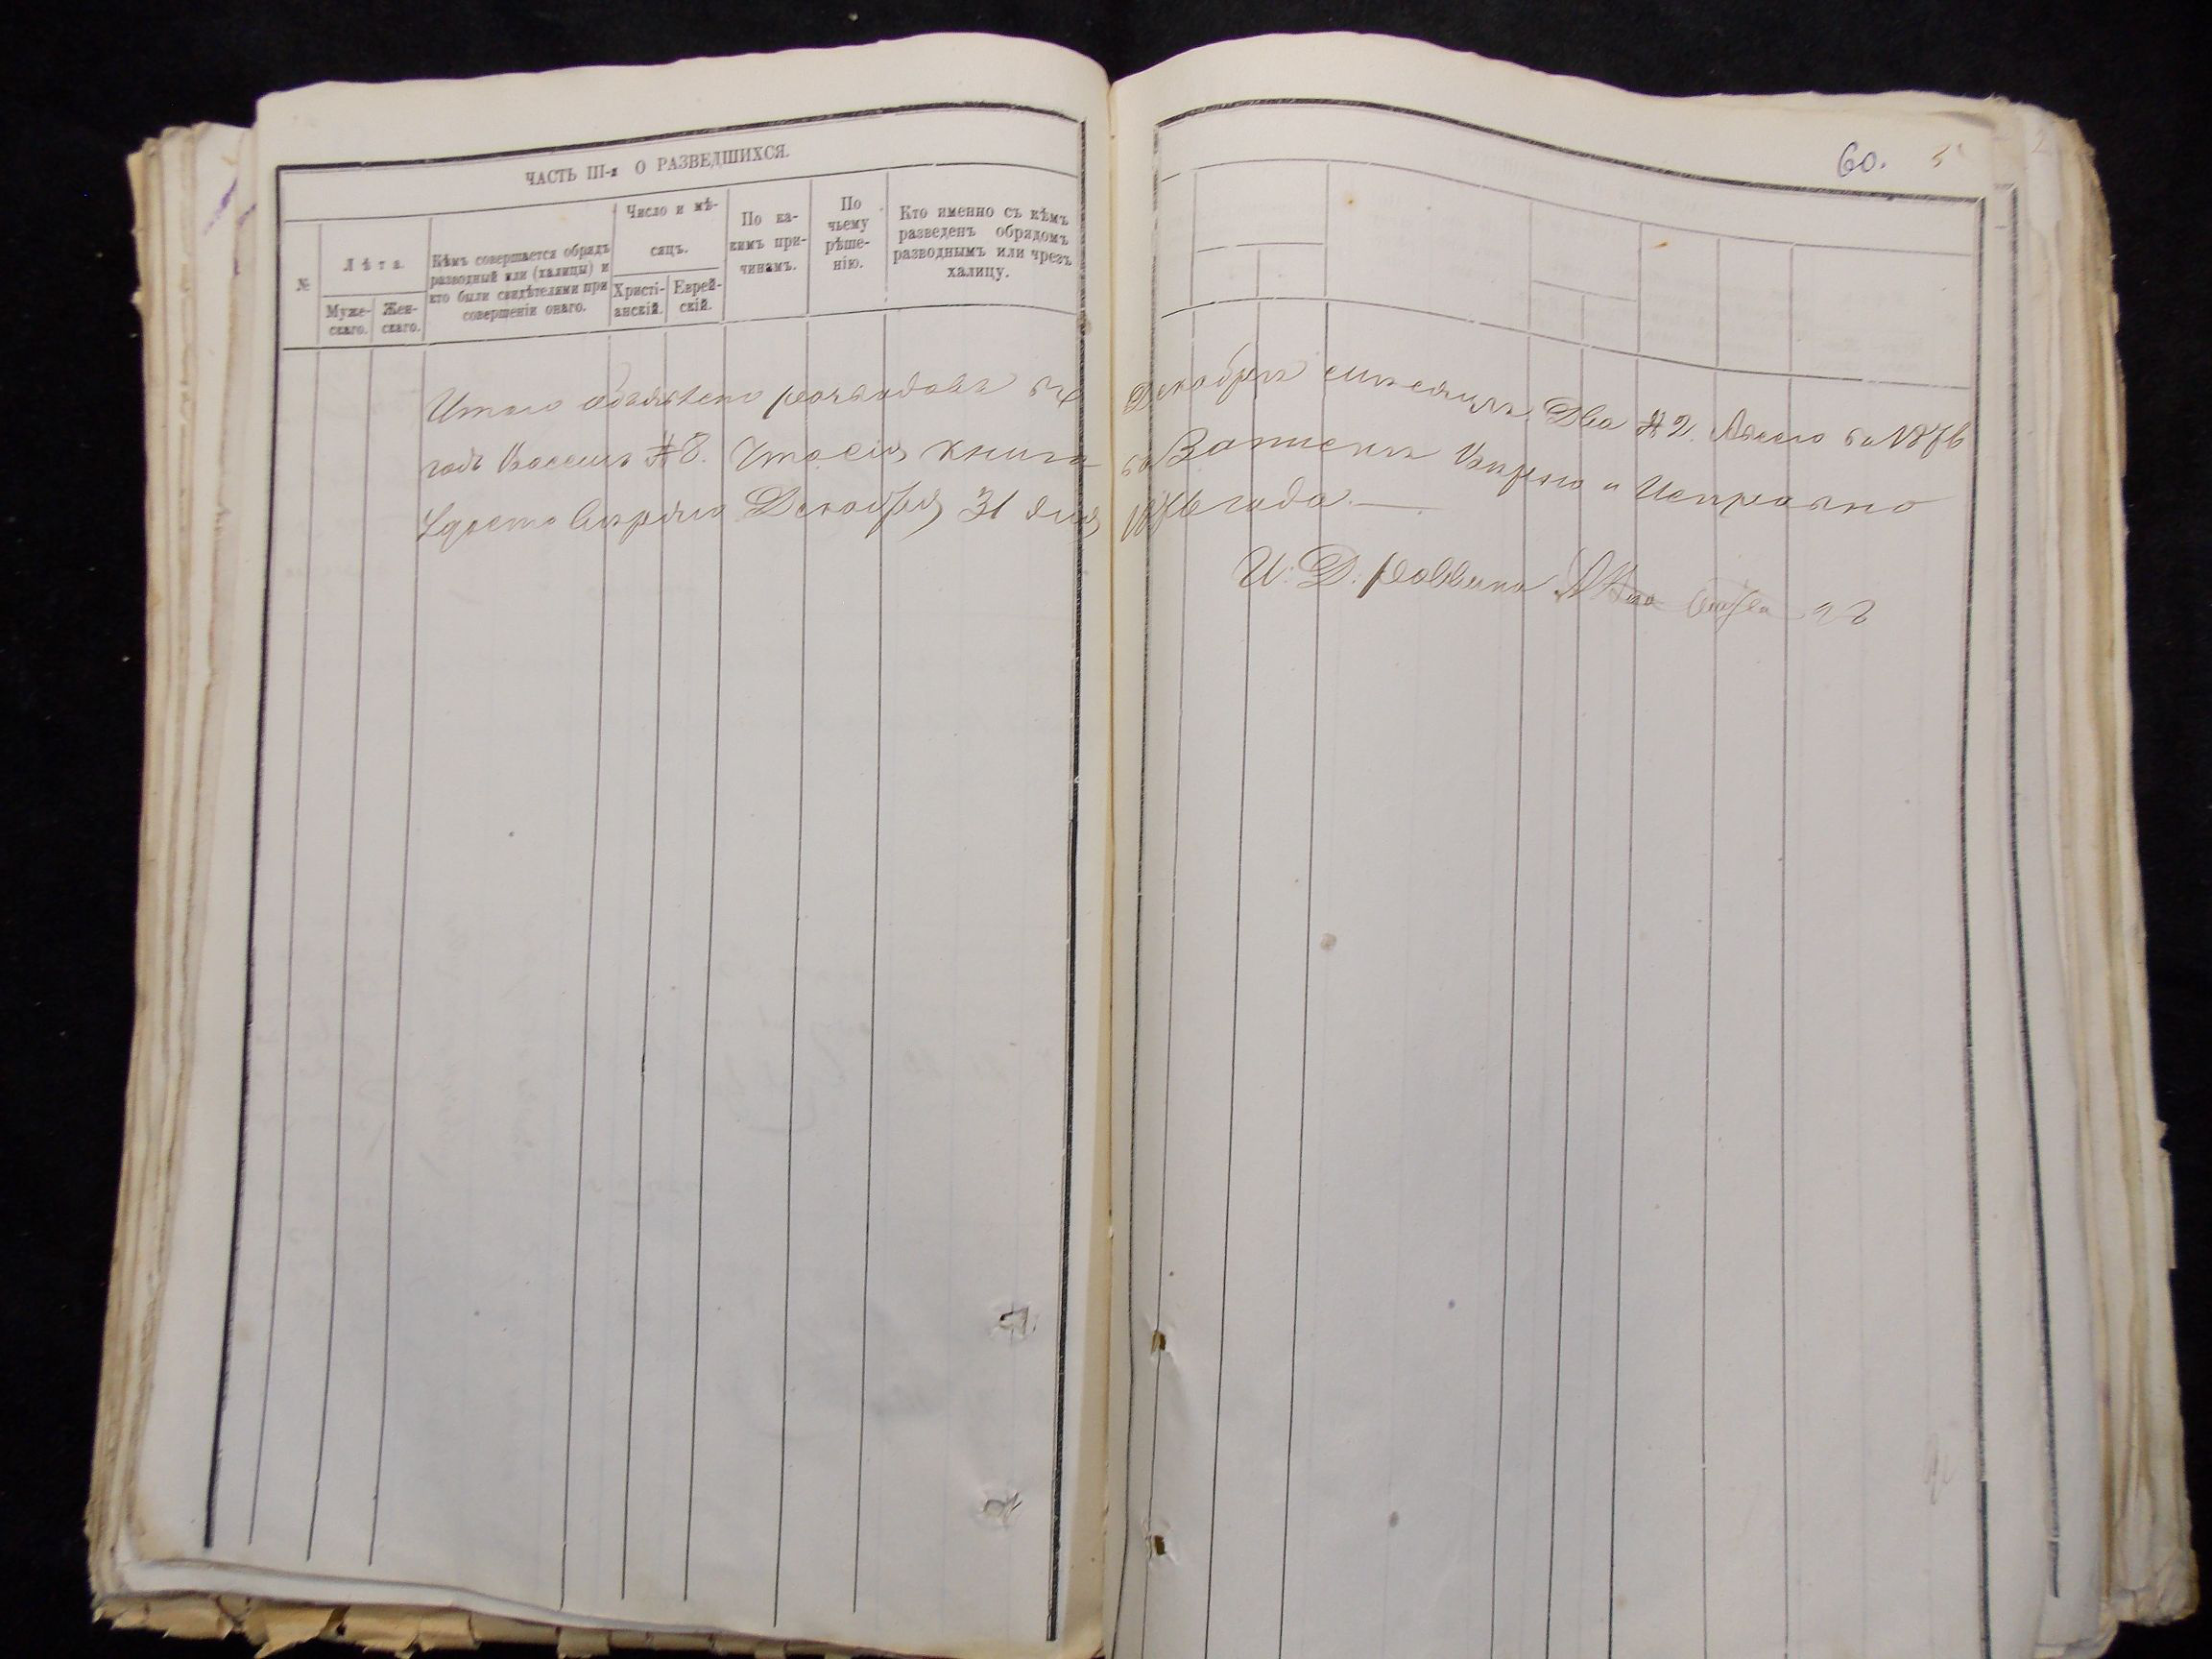 ЧАСТЬ III-я О РАЗВЕДШИХСЯ.
№
Лѣта.
Муже-
скаго.
Жен-
скаго.
Кѣмъ совершается обрядъ
разводный или (халицы) и
кто были свидѣтелями при
совершеніи онаго.
Число и мѣ-
сяцъ.
Христі-
анскій.
Еврей-
скій.
По ка-
кимъ при-
чинамъ.
По
чьему
рѣше-
нію.
Кто именно съ кѣмъ
разведенъ обрядомъ
разводнымъ или чрезъ
халицу.
60.
Итого разводовъ въ Декабрѣ мѣсяцѣ Два № 2. Всего въ 1876
годъ Восемь № 8. Что сія книга Вѣрно и Исправно
Декабря 31 дня 1876 года.
И: Д: Раввина